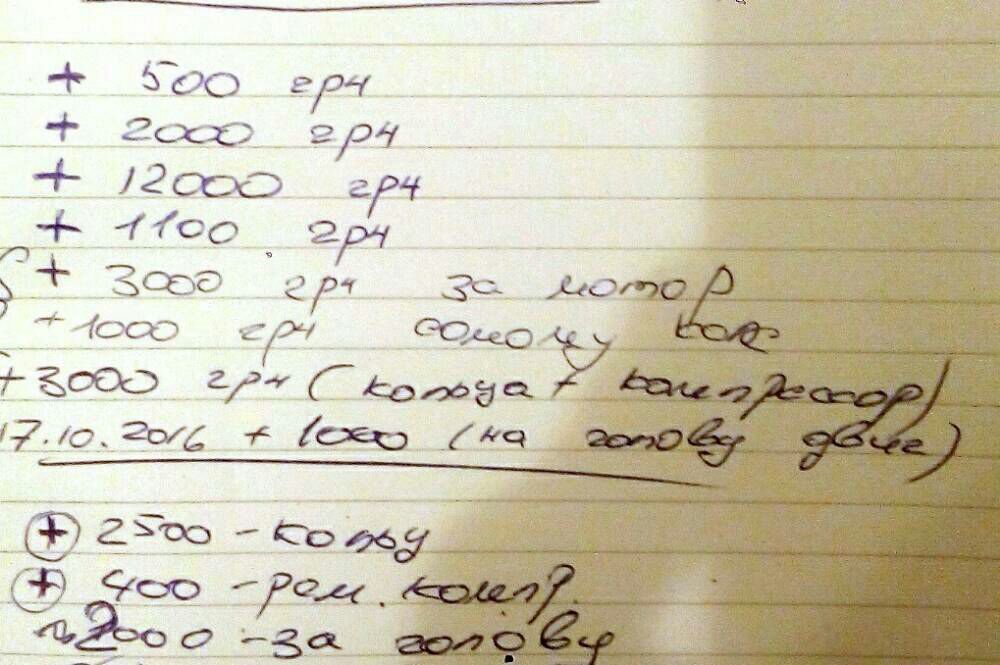 + 500 грн
+ 2000 грн
+ 12000 грн
+ 1100 грн
+ 3000 грн за мотор
+1000 грн самому
+3000 грн (кольца + компрессор)
17.10.2016 + 1000 (на голову двиг)
+ 2500 - кольц
+ 400 - рем. компр.
2000 - за голову